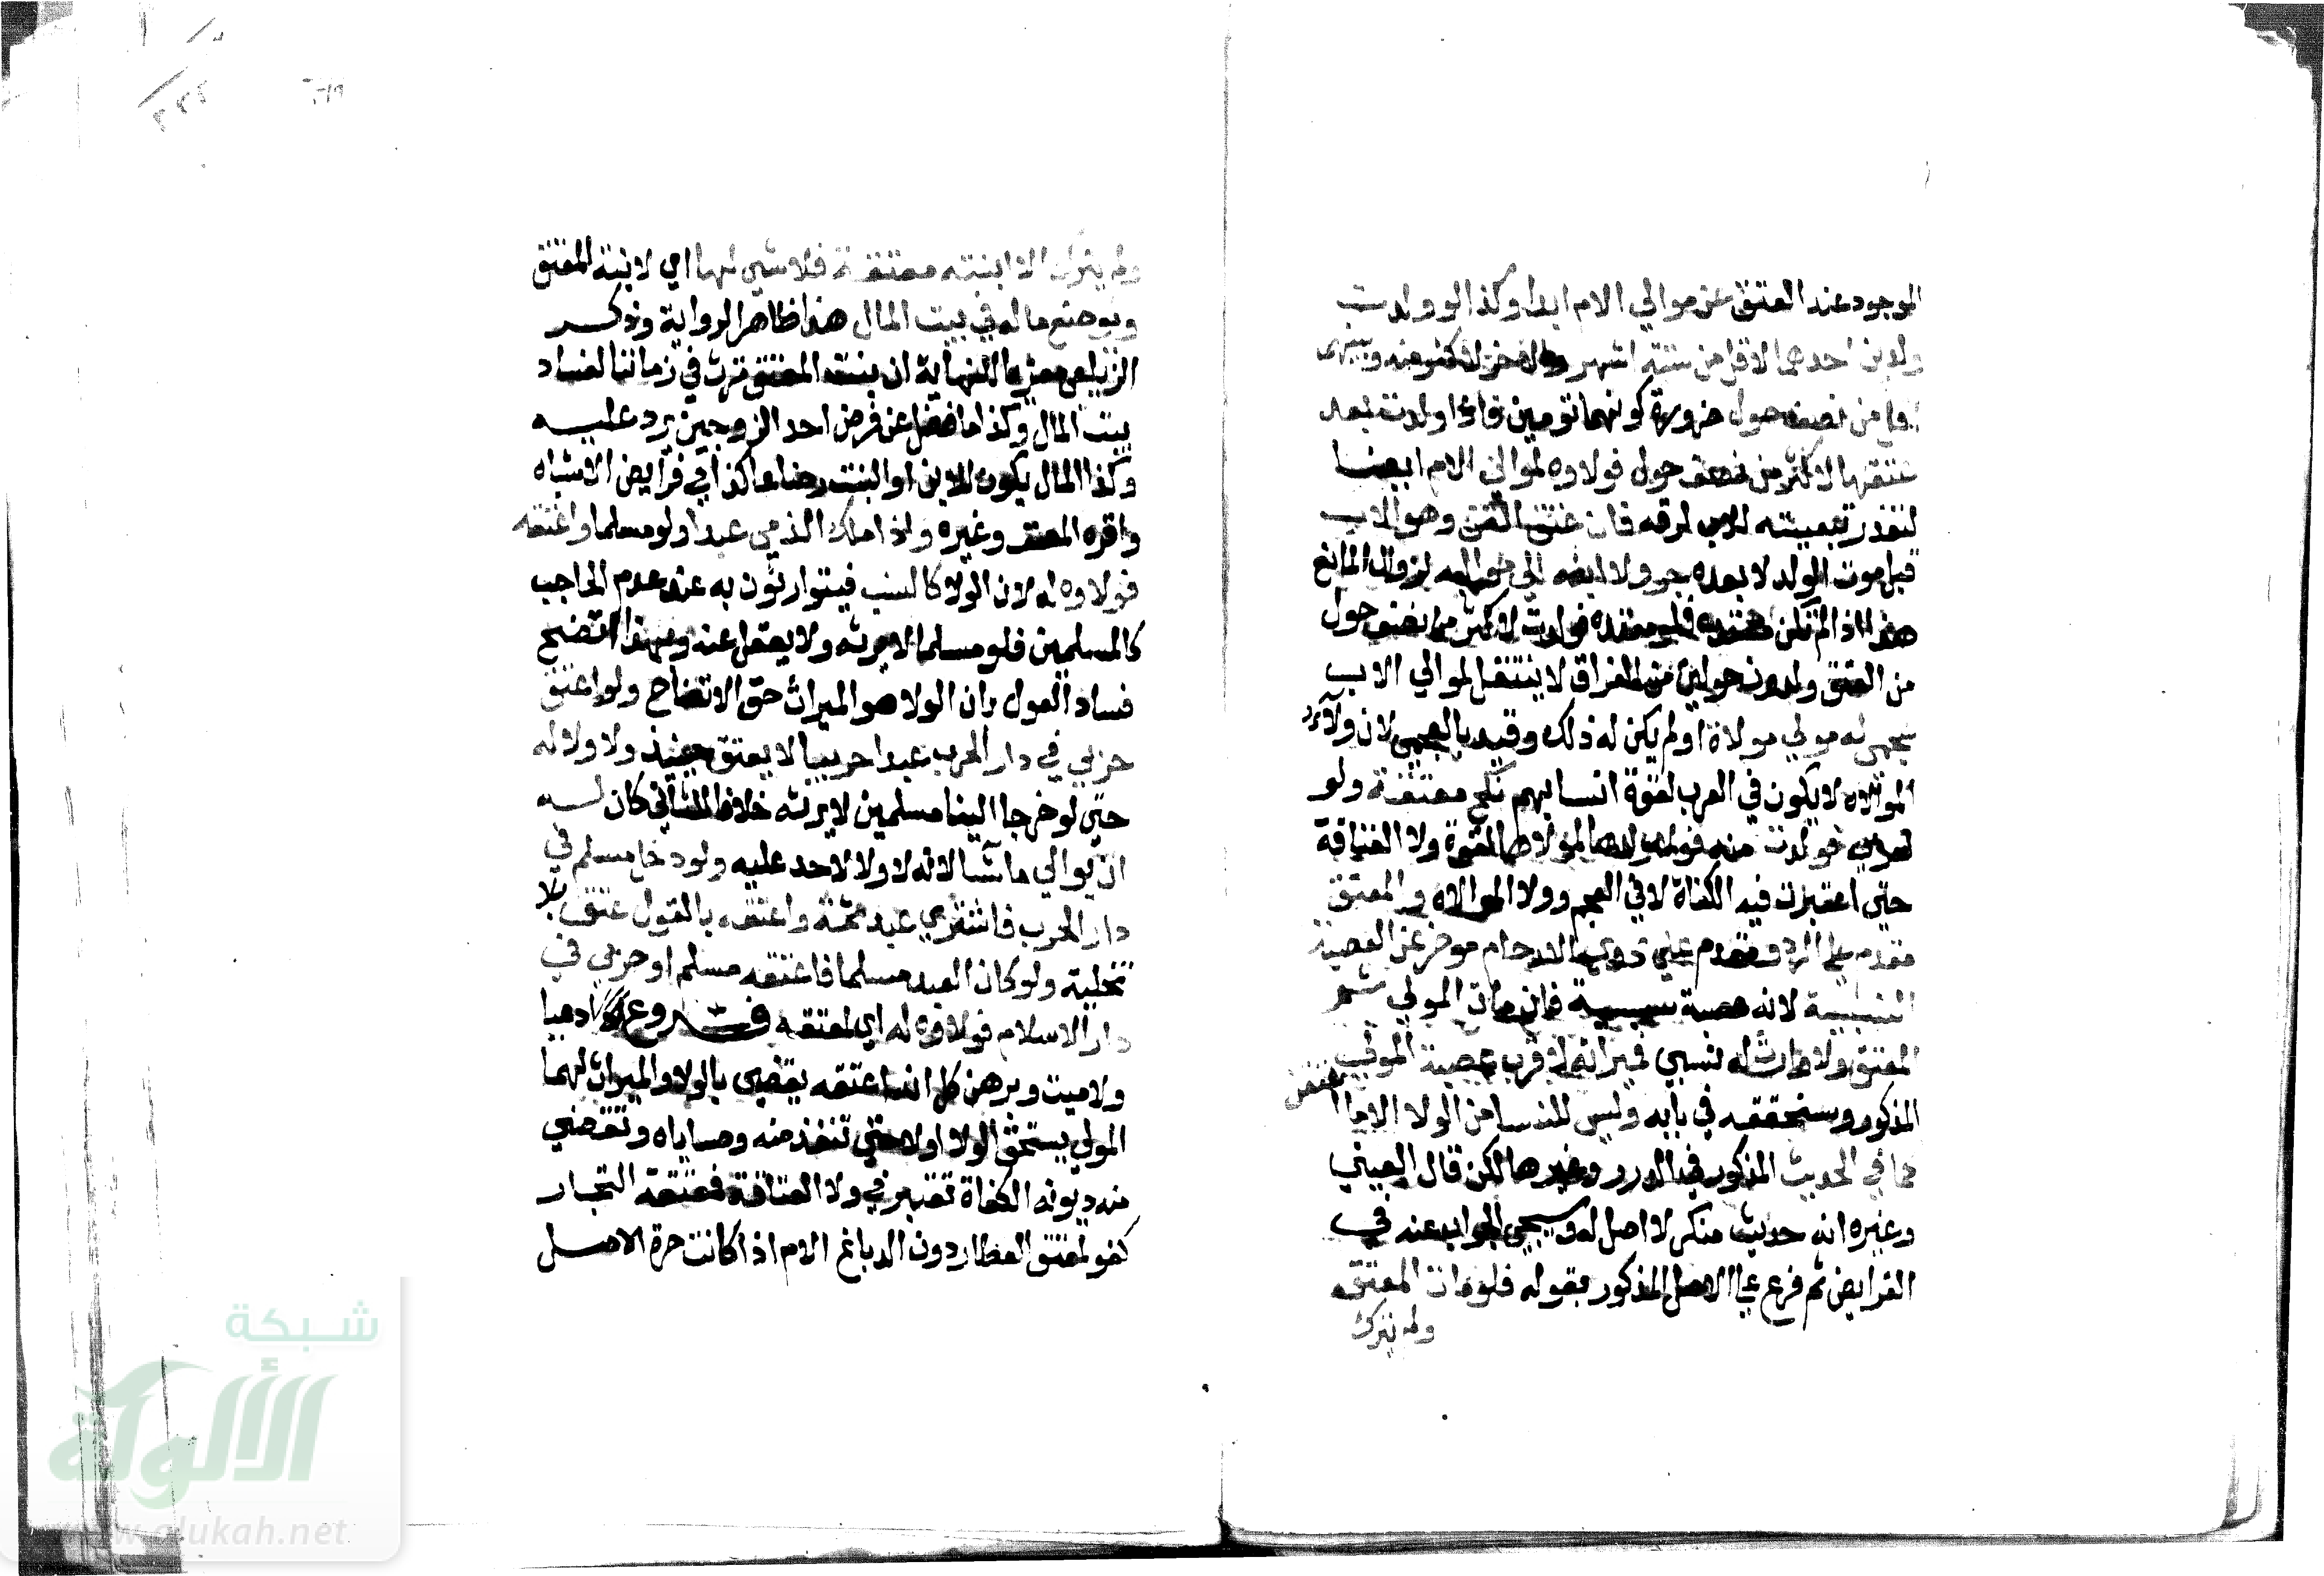 الموجود عند العتق عن موالي الام ابدا وكذا لو ولدت
ولدين احدهما لاقل من ستة اشهر والاخر لاكثر منه وبينهما
اقل من نصف حول ضرورة كونهما تومين فاذا ولدت بعد
عتقها لاكثر من نصف حول فولاوه لموالي الام ايضا
لتعذر تبعيته للاب لرقه فان عتق القن وهو الاب
قبل موت الولد لا بعده جر ولا ابنه الي مواليه لزوال المانع
هذا اذا لم تكن معتدة فلو معتدة فولدت لاكثر من نصف حول
من العتق ولدون حولين من الفراق لا ينتقل لموالي الاب
عجمي له مولي مولاة او لم يكن له ذلك وقيد بالعجمي لان ولاء
الموالاة لا يكون في العرب لقوة انسابهم نكح معتقة ولو
لعربي فولدت منه فولاء ولدها لمولاها لقوة ولا العتاقة
حتي اعتبرت فيه الكفاة لا في العجم وولا الموالاة والمعتق
مقدم علي الرد ومقدم علي ذوي الارحام موخر عن العصبة
النسبية لانه عصبة سببية فان مات المولي ثم
المعتق ولا وارث له نسبي فميراثه لاقرب عصبة المولي
المذكور وسنحققه في بابه وليس للنسا من الولا الا ما اعتقن
كما في الحديث المذكور في الدرر وغيرها لكن قال العيني
وغيره انه حديث منكر لا اصل له وسيجي الجواب عنه في
الفرايض ثم فرع علي الاصل المذكور بقوله فلو مات المعتق
ولم يترك
ولم يترك الا ابنته معتقه فلا شي لها اي لابنة المعتق
ويوضع ماله في بيت المال هذا ظاهر الرواية وذكر
الزيلعي معزيا للنهاية ان بنت المعتق ترث في زماننا لفساد
بيت المال وكذا ما فضل عن فرض احد الزوجين يرد عليه
وكذا المال يكون للابن او البنت رضاعا كذا في فرايض الاشباه
واقره المصنف وغيره واذا ملك الذمي عبدا ولو مسلما واعتقه
فولاوه له لان الولا كالنسب فيتوارثون به عند عدم الحاجب
كالمسلمين فلو مسلما لا يرثه ولا يعقل عنه وبهذا اتضح
فساد القول بان الولا هو الميراث حق الاتضاح ولو اعتق
حربي في دار الحرب عبدا حربيا لا يعتق حينيذ ولا ولا له
حتي لو خرجا الينا مسلمين لا يرثه خلافا للثاني كان له
ان يوالي ما شا لانه لا ولا لاحد عليه ولو دخل مسلم في
دار الحرب فاشتري عبد ثمة واعتقه بالقول عتق بلا
تخلية ولو كان العبد مسلما فاعتقه مسلم او حربي في
دار الاسلام فولاوه له اي لمعتقه فــروع ادعيا
ولا ميت وبرهن كل انه اعتقه يقضي بالولا والميراث لهما
المولي يستحق الولا اولا حتي تنفذ منه وصاياه وتقضي
منه ديونه الكفاة تعتبر في ولا العتاقة فمعتقة التجار
كفو لمعتق العطار دون الدباغ الام اذا كانت حرة الاصل
شبكة
الألوكة
www.alukah.net